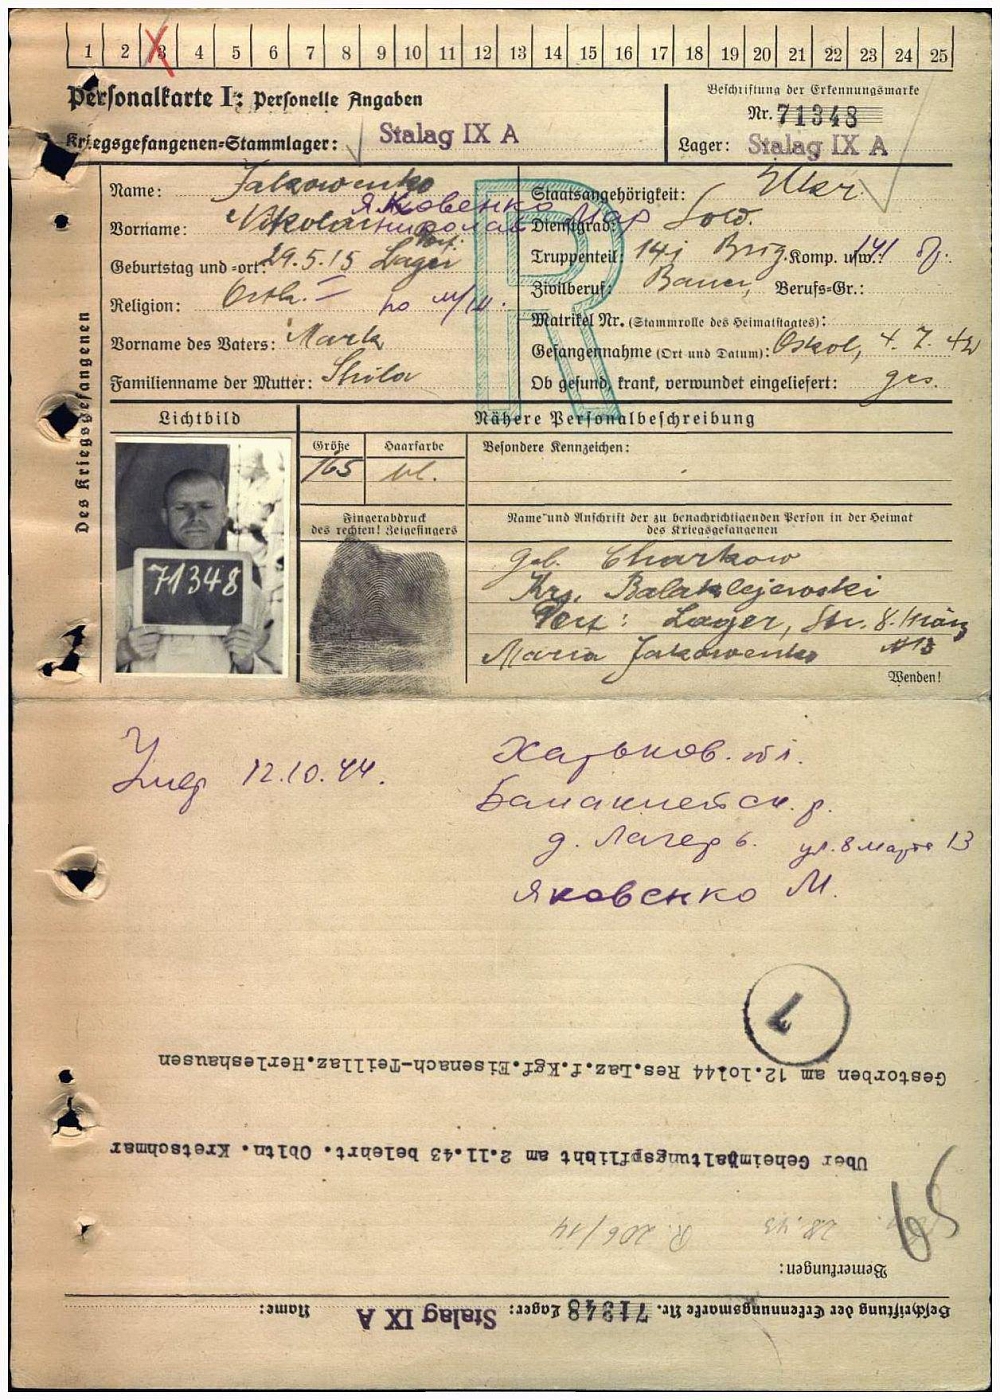 1 2 3 4 5 6 7 8 9 10 11 12 13 14 15 16 17 18 19 20 21 22 23 24 25
Personalkarte I: Personelle Angaben
Kriegsgefangenen-Stammlager: Stalag IX A
Beschriftung der Erkennungsmarke
Nr. 71348
Lager: Stalag IX A
Des Kriegsgefangenen
Name: Jakowenko
Яковенко
Vorname: Nikolai
николай Мар
Geburtstag und -ort: 29.5.15 Lager
Religion: Orth.
Vorname des Vaters: Mark
Familienname der Mutter:
Staatsangehörigkeit: Ukr.
Dienstgrad: Sold.
Truppenteil: 141 Brig. Komp. usw.: 141
Zivilberuf: Bauer, Berufs-Gr.:
Matrikel Nr. (Stammrolle des Heimatstaates):
Gefangennahme (Ort und Datum): Oskol, 4. 7. 42
Ob gesund, krank, verwundet eingeliefert: ges.
R
Lichtbild
Nähere Personalbeschreibung
Größe
165
Haarfarbe
bl.
Besondere Kennzeichen:
71348
Fingerabdruck
des rechten! Zeigefingers
Name und Anschrift der zu benachrichtigenden Person in der Heimat
des Kriegsgefangenen
geb. Charkow
Krs. Balaklejewski
Lager, Str. 8. März
Maria Jakowenko №13
Wenden!
Умер 12.10.44.
Харьков. обл.
Балаклейск. р.
д. Лагерь. ул. 8 марта 13
Яковенко М.
Gestorben am 12.10144 Res.Laz.f.Kgf.Eisenach-Teillaz.Herleshausen
Über Geheimhaltungspflibht am 2.11.43 belehrt. Obltn. Kretschmar
R. 206/14
65
Bemerkungen:
Beschriftung der Erkennungsmarke Nr. 71348 Lager: Stalag IX A Name: